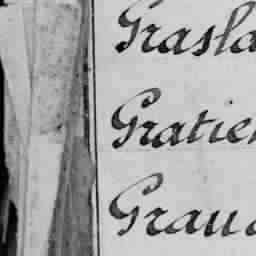 Grasla
Gratien
Grau